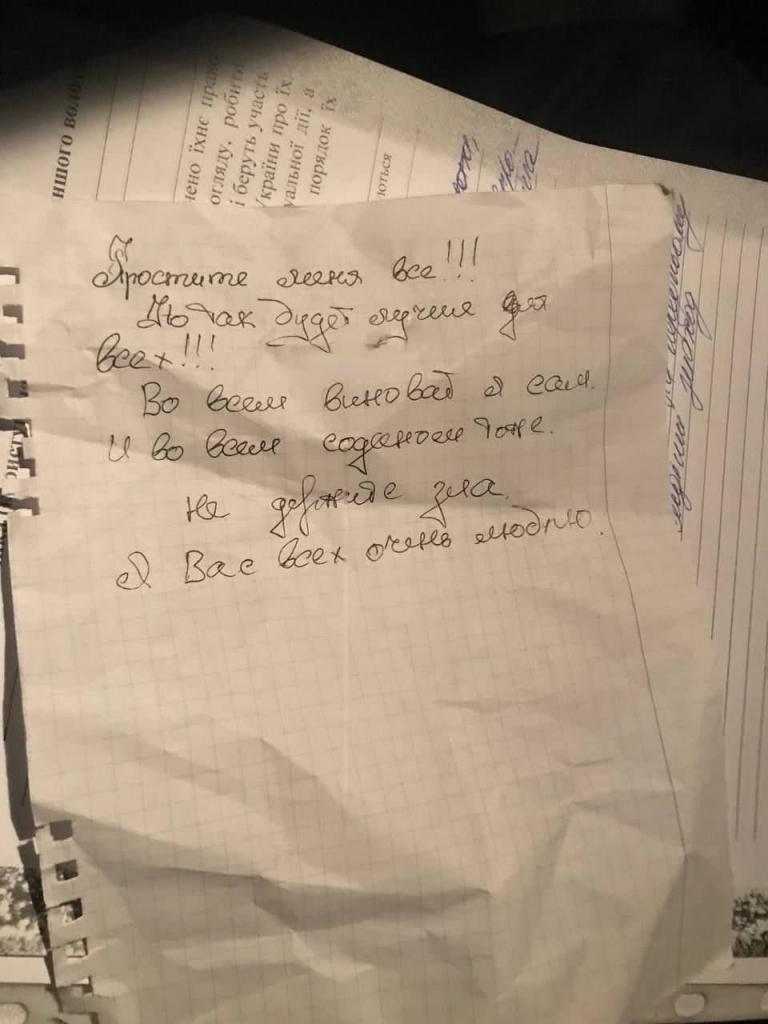 ншого воло
чено їхнє право
огляду, робити
і беруть участь
країни про їх
уальної дії, а
порядок їх
ються
Простите меня все!!!
Но так будет лучше для
всех!!!
Во всем виноват я сам.
И во всем соданом тоже.
Не держите зла.
Я Вас всех очень люблю.